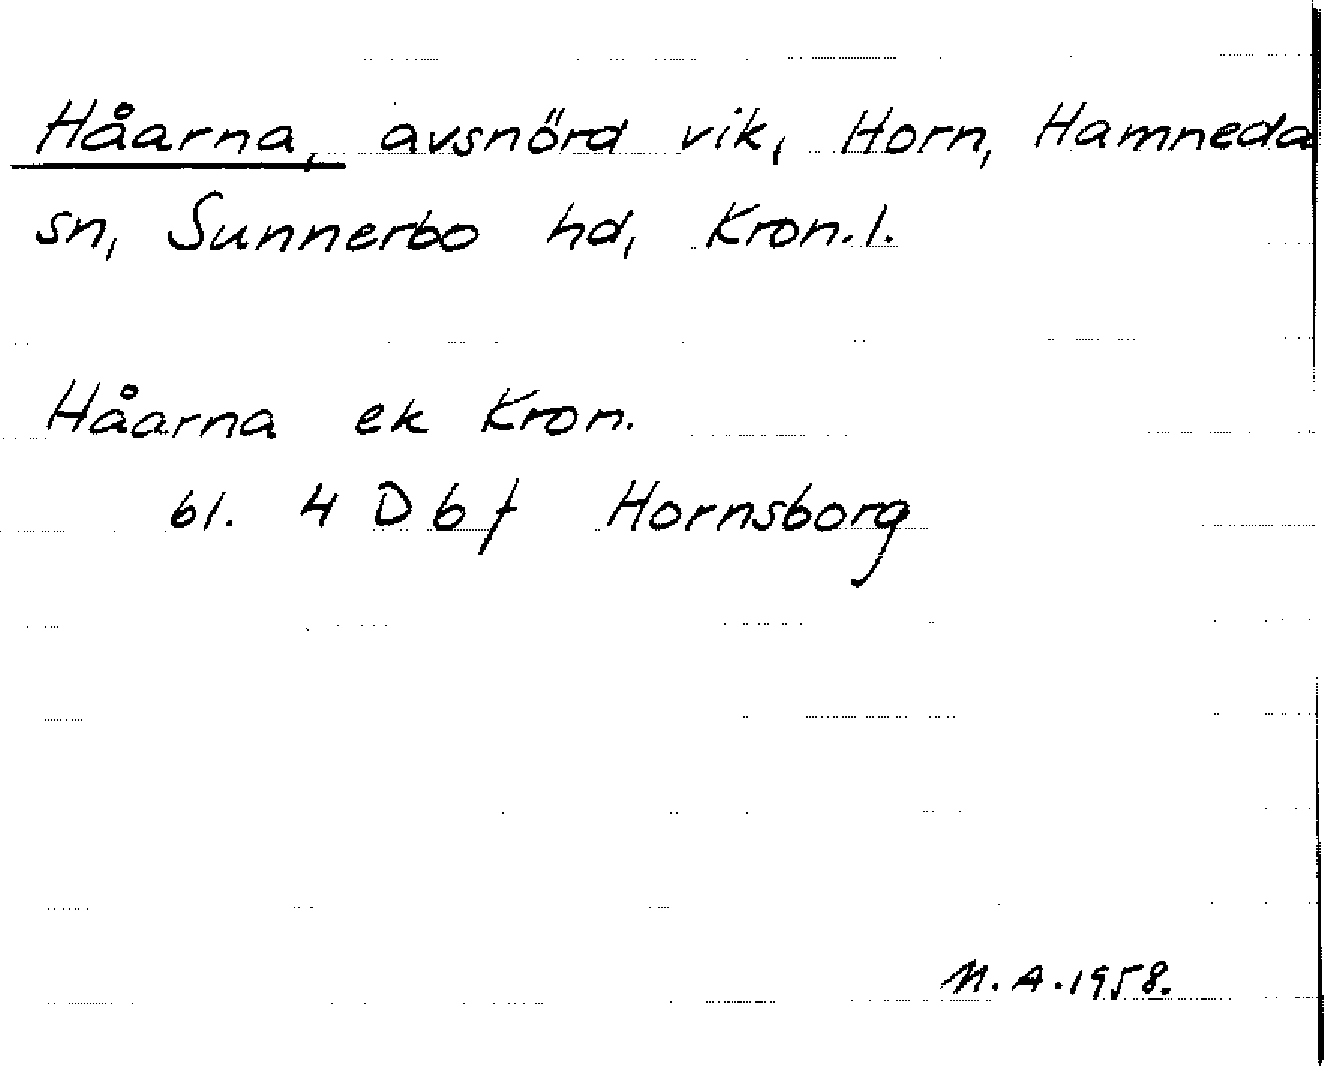 Håarna, avsnörd vik, Horn, Hamneda
sn, Sunnerbo hd, Kron.l.
Håarna ek Kron.
bl. 4 D b f Hornsborg
M.A.1958.